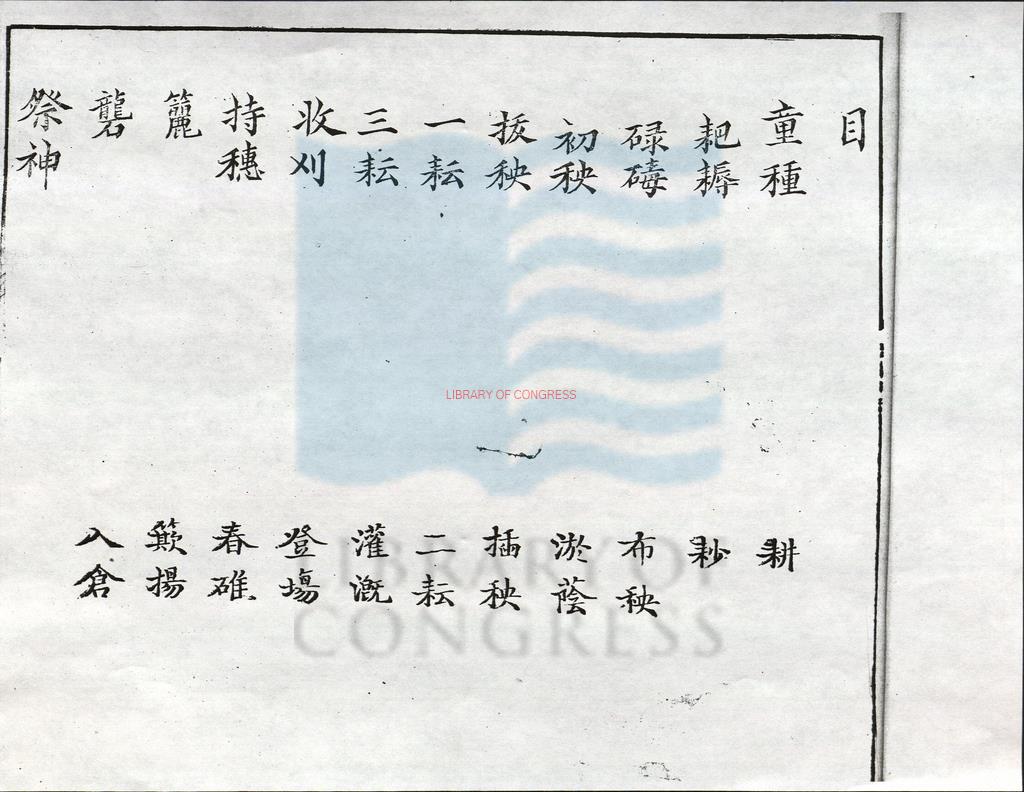 目
童種
耕
耙耨
耖
碌碡
布秧
初秧
淤蔭
拔秧
插秧
一耘
二耘
三耘
灌溉
收刈
登場
持穗
舂碓
籭
簸揚
礱
入倉
祭神
LIBRARY OF CONGRESS
LIBRARY OF
CONGRESS